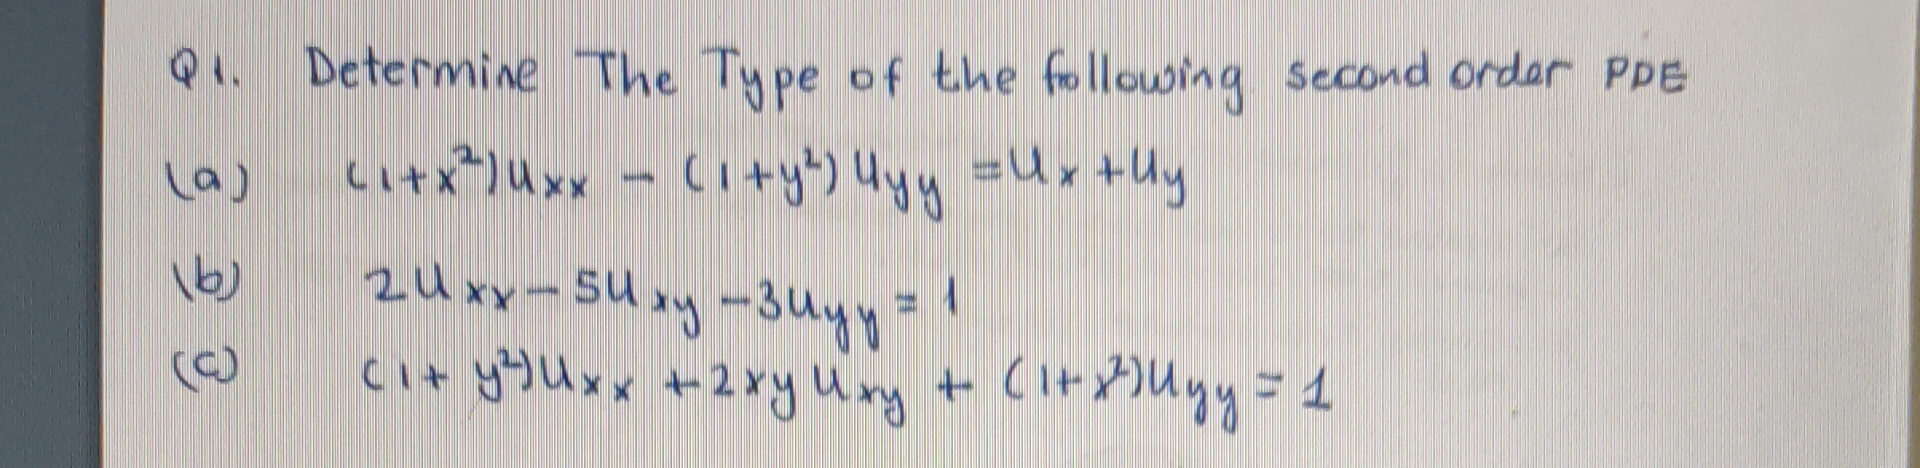 Q1. Determine The Type of the following second order PDE
(a) (1+x²)uxx - (1+y²)uyy = ux + uy
(b) 2uxx - 5uxy - 3uyy = 1
(c) (1+y²)uxx + 2xyuxy + (1+x²)uyy = 1